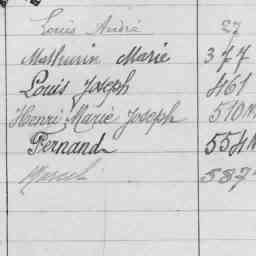 Louis André 27
Mathurin Marie 347
Louis Joseph 461
Henri Marie Joseph 510 N
Fernand 554 N
587